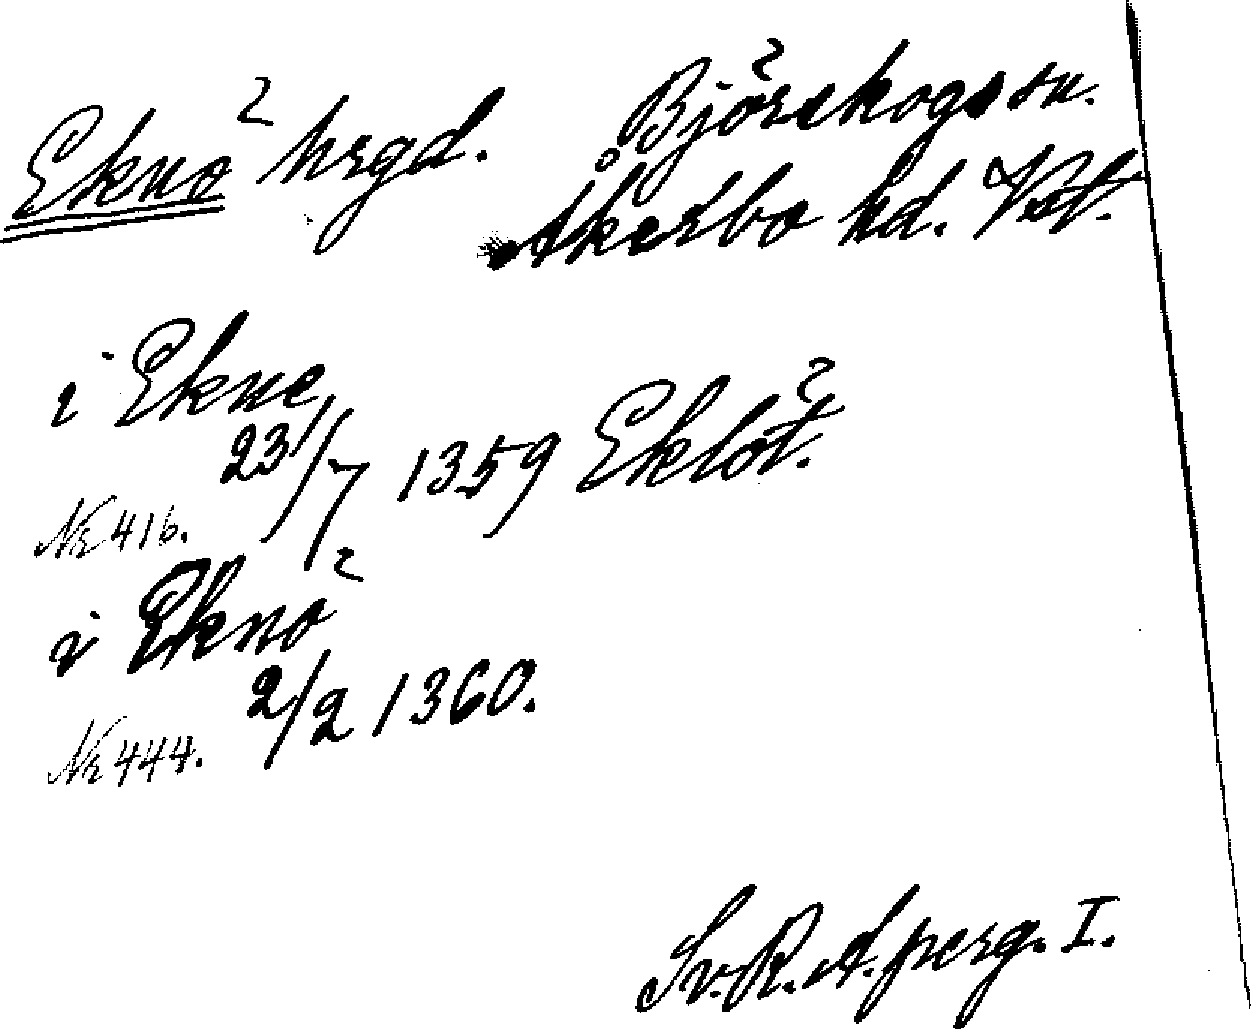 Eknö hrgd. Björskogs sn.
Åkerbo hd. Vstl.
i Ekne
23/7 1359 Eklöt.
Nr 416.
i Eknö
2/2 1360.
Nr 444.
Sv. R. A. perg. I.